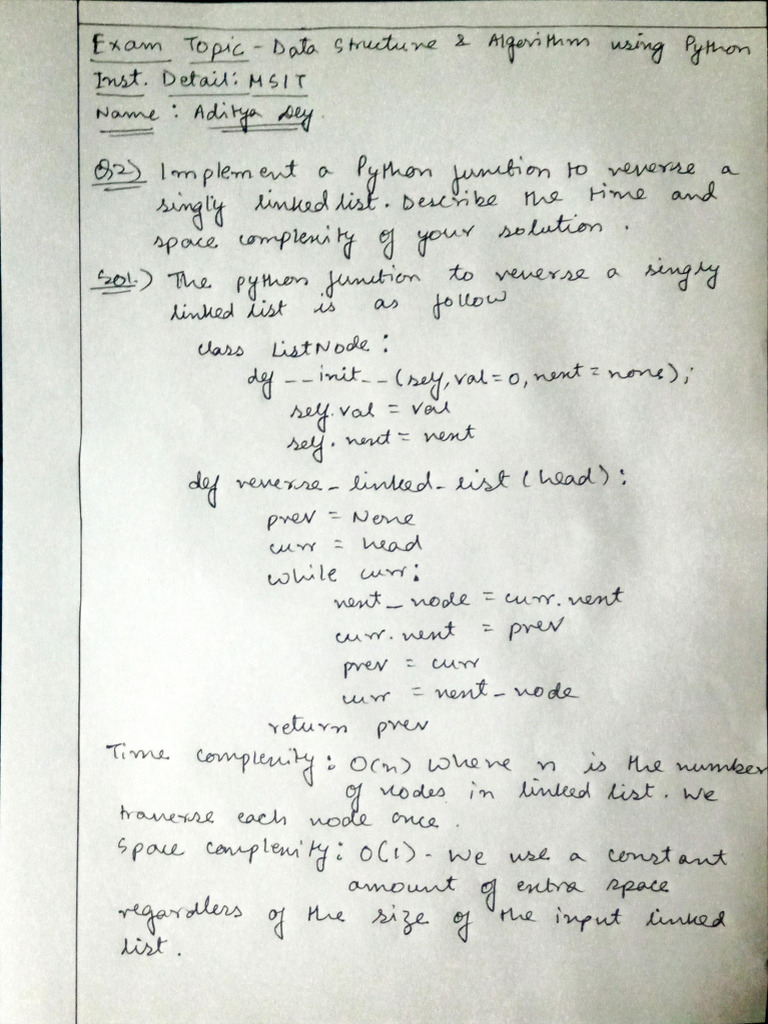 Exam Topic - Data Structure & Algorithm using Python
Inst. Detail: MSIT
Name : Aditya Dey
Q2) Implement a Python function to reverse a
singly linked list. Describe the time and
space complexity of your solution.
Sol.) The python function to reverse a singly
linked list is as follow
class ListNode:
def __init__(self, val=0, next=none);
self.val = val
self.next = next
def reverse_linked_list(head):
prev = None
curr = head
while curr:
next_node = curr.next
curr.next = prev
prev = curr
curr = next_node
return prev
Time complexity: O(n) where n is the number
of nodes in linked list. We
traverse each node once.
Space complexity: O(1) - We use a constant
amount of extra space
regardless of the size of the input linked
list.